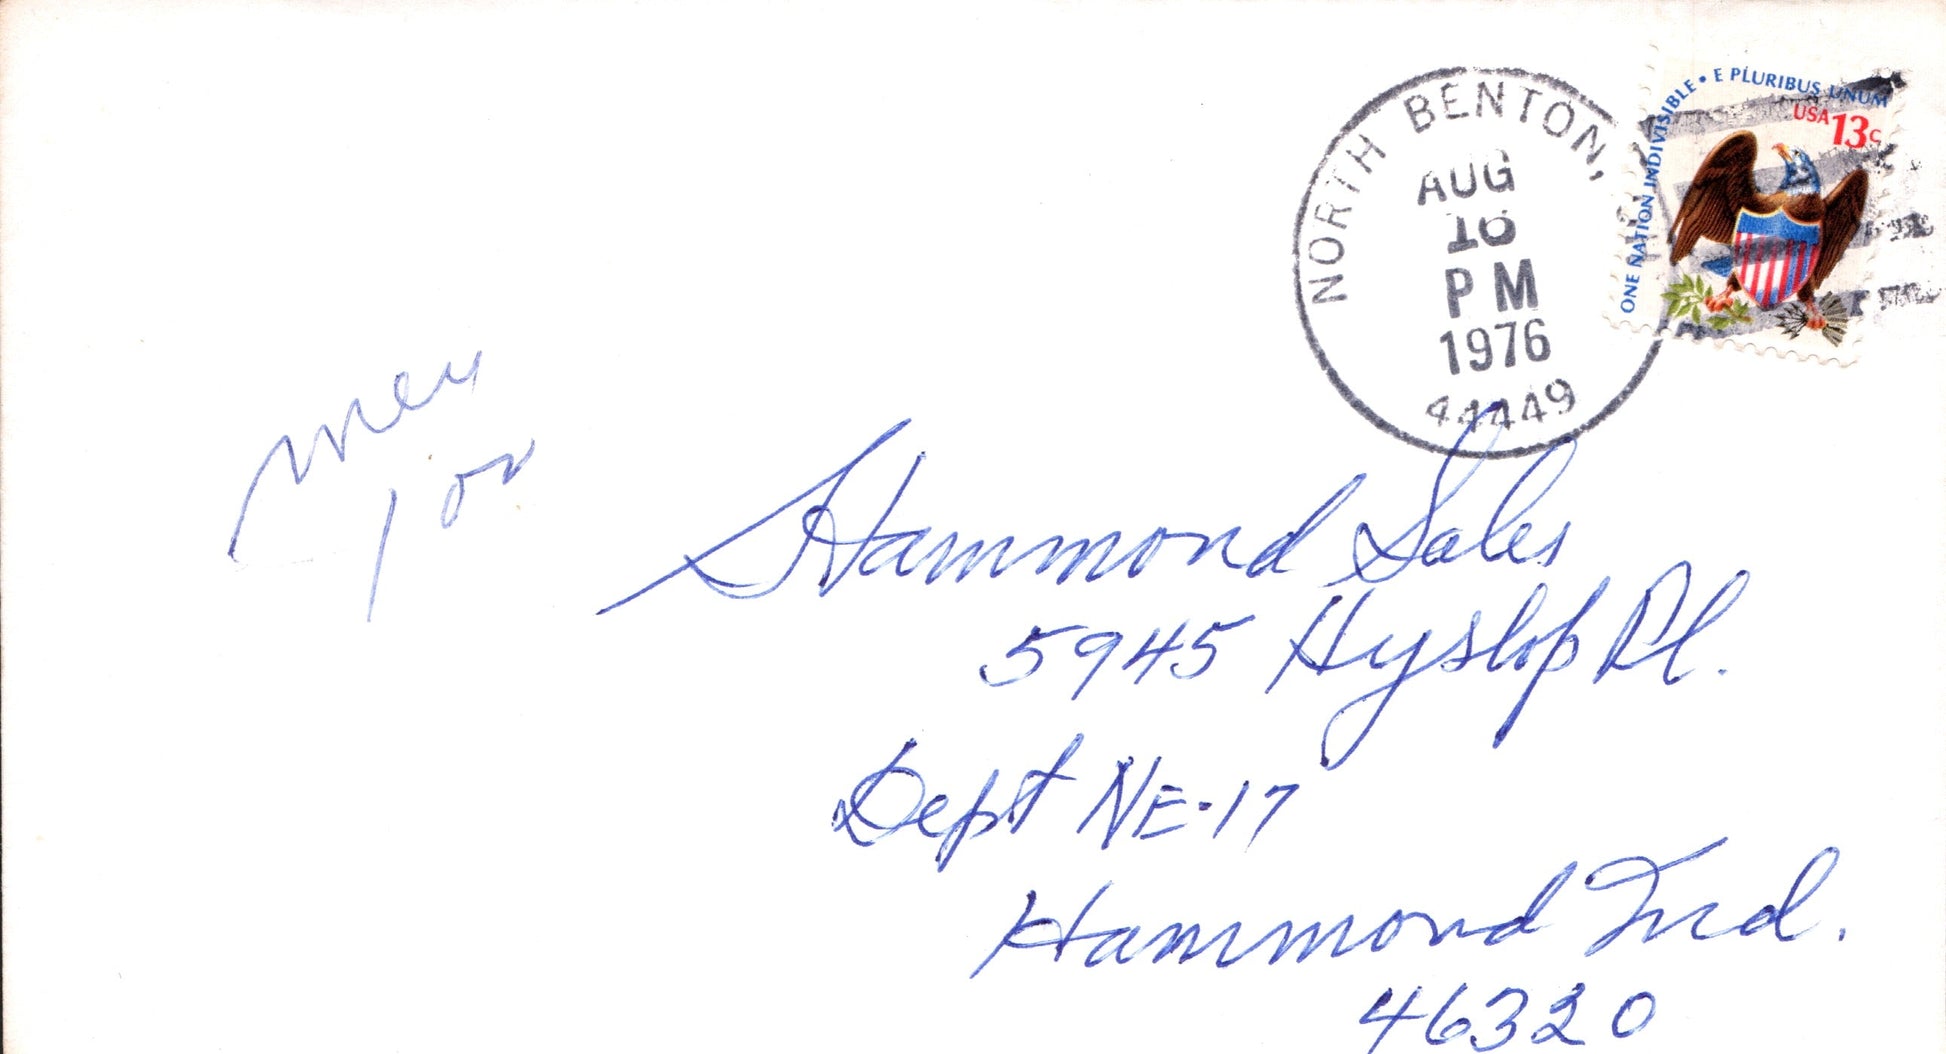 ONE NATION INDIVISIBLE • E PLURIBUS UNUM
USA 13c
NORTH BENTON,
AUG
16
PM
1976
44449
Hammond Sales
5945 Hyslop Pl.
Dept NE-17
Hammond Ind.
46320